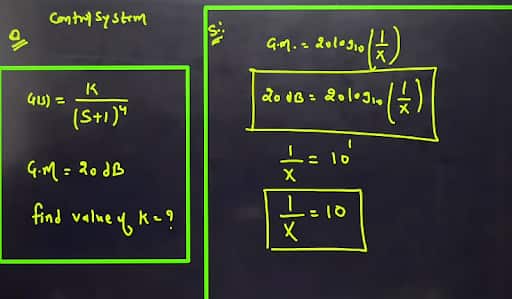 Control System
Q
G(s) = K / (S+1)^4
G.M = 20 dB
find value of K = ?
S:
G.M. = 20log10 (1/X)
20 dB = 20log10 (1/X)
1/X = 10^1
1/X = 10